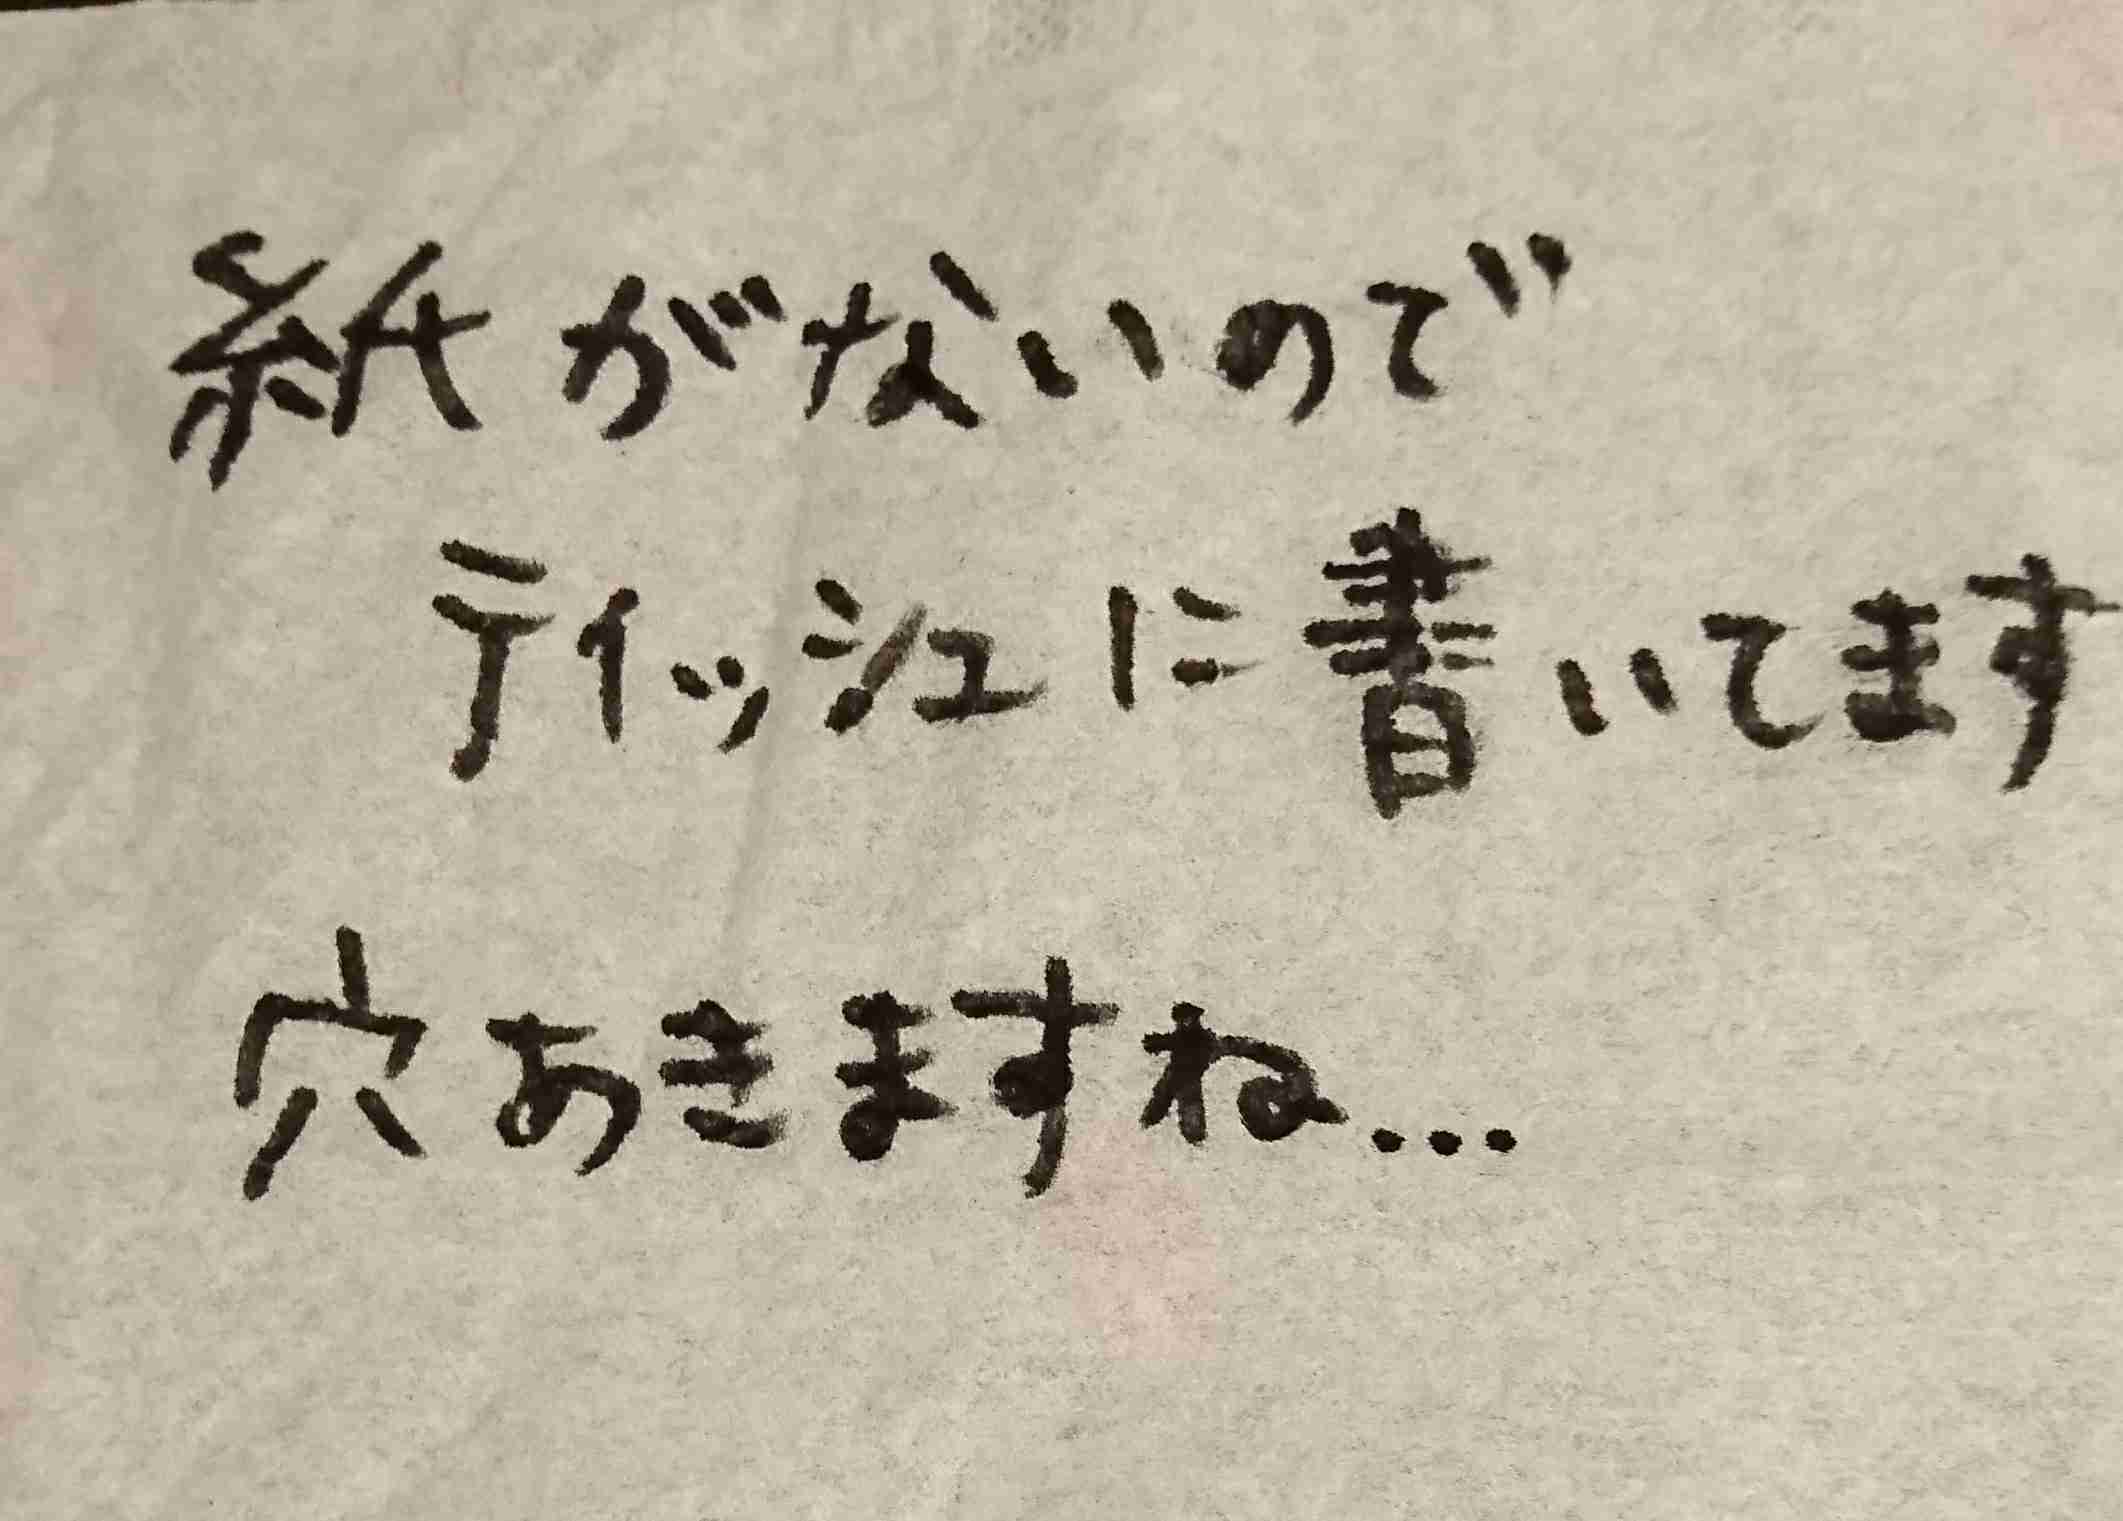 紙がないので
ティッシュに書いてます
穴あきますね...